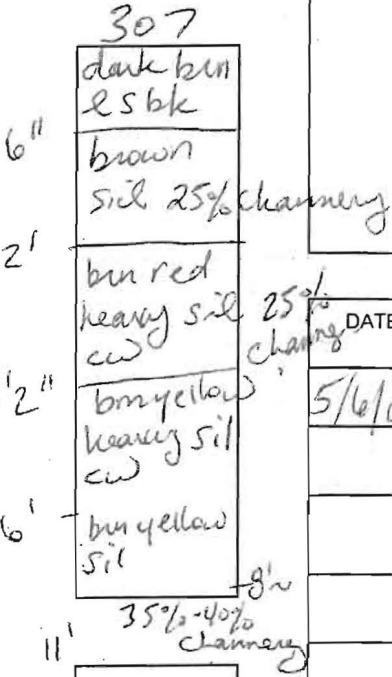 307
dark brn
l sbk
6"
brown
sil 25% channery
2'
brn red
heavy sil 25%
cw channery
DATE
'2"
brn yellow
heavy sil
cw
5/6/
6'
brn yellow
sil
8'~
35%-40%
channery
11'